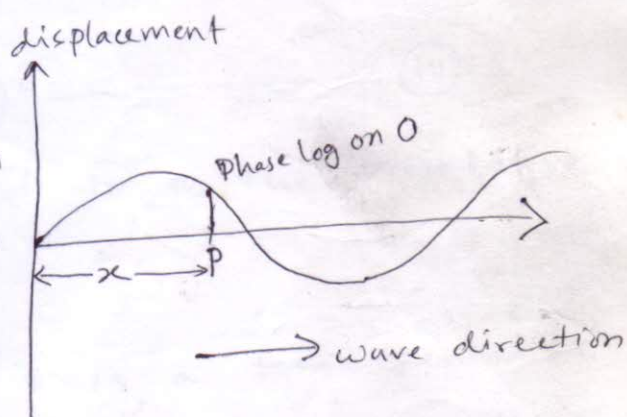 displacement
phase log on O
x
P
wave direction